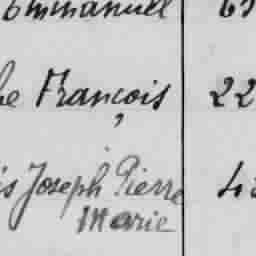 Emmanuel
François 22
Joseph Pierre
Marie